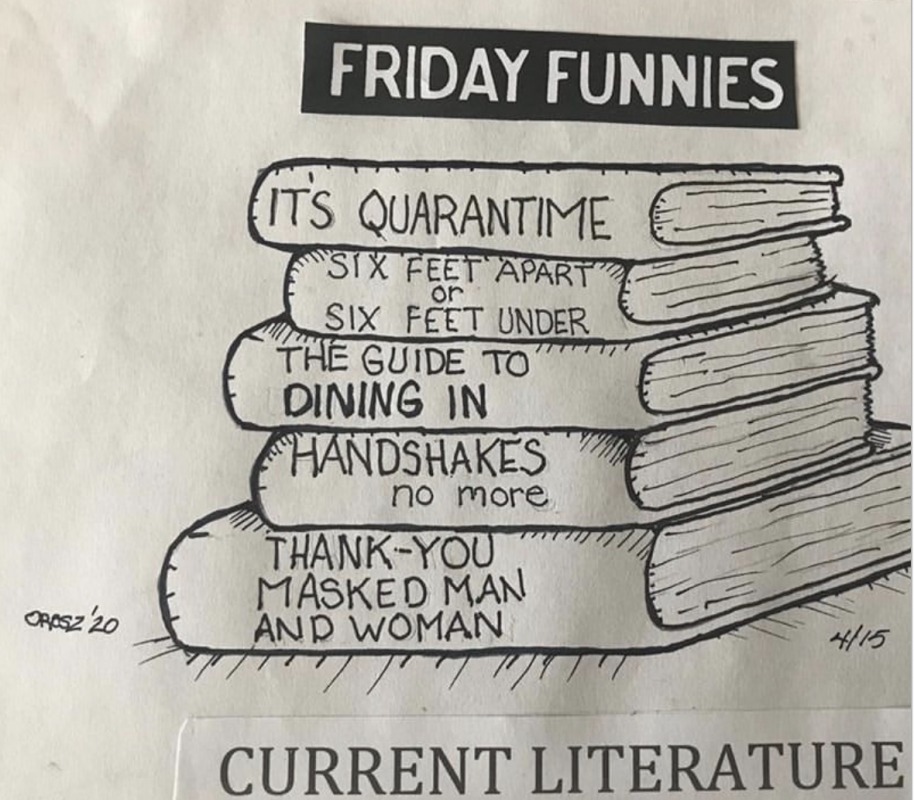 FRIDAY FUNNIES
IT'S QUARANTIME
SIX FEET APART
or
SIX FEET UNDER
THE GUIDE TO
DINING IN
HANDSHAKES
no more
THANK-YOU
MASKED MAN
AND WOMAN
OROSZ '20
4/15
CURRENT LITERATURE